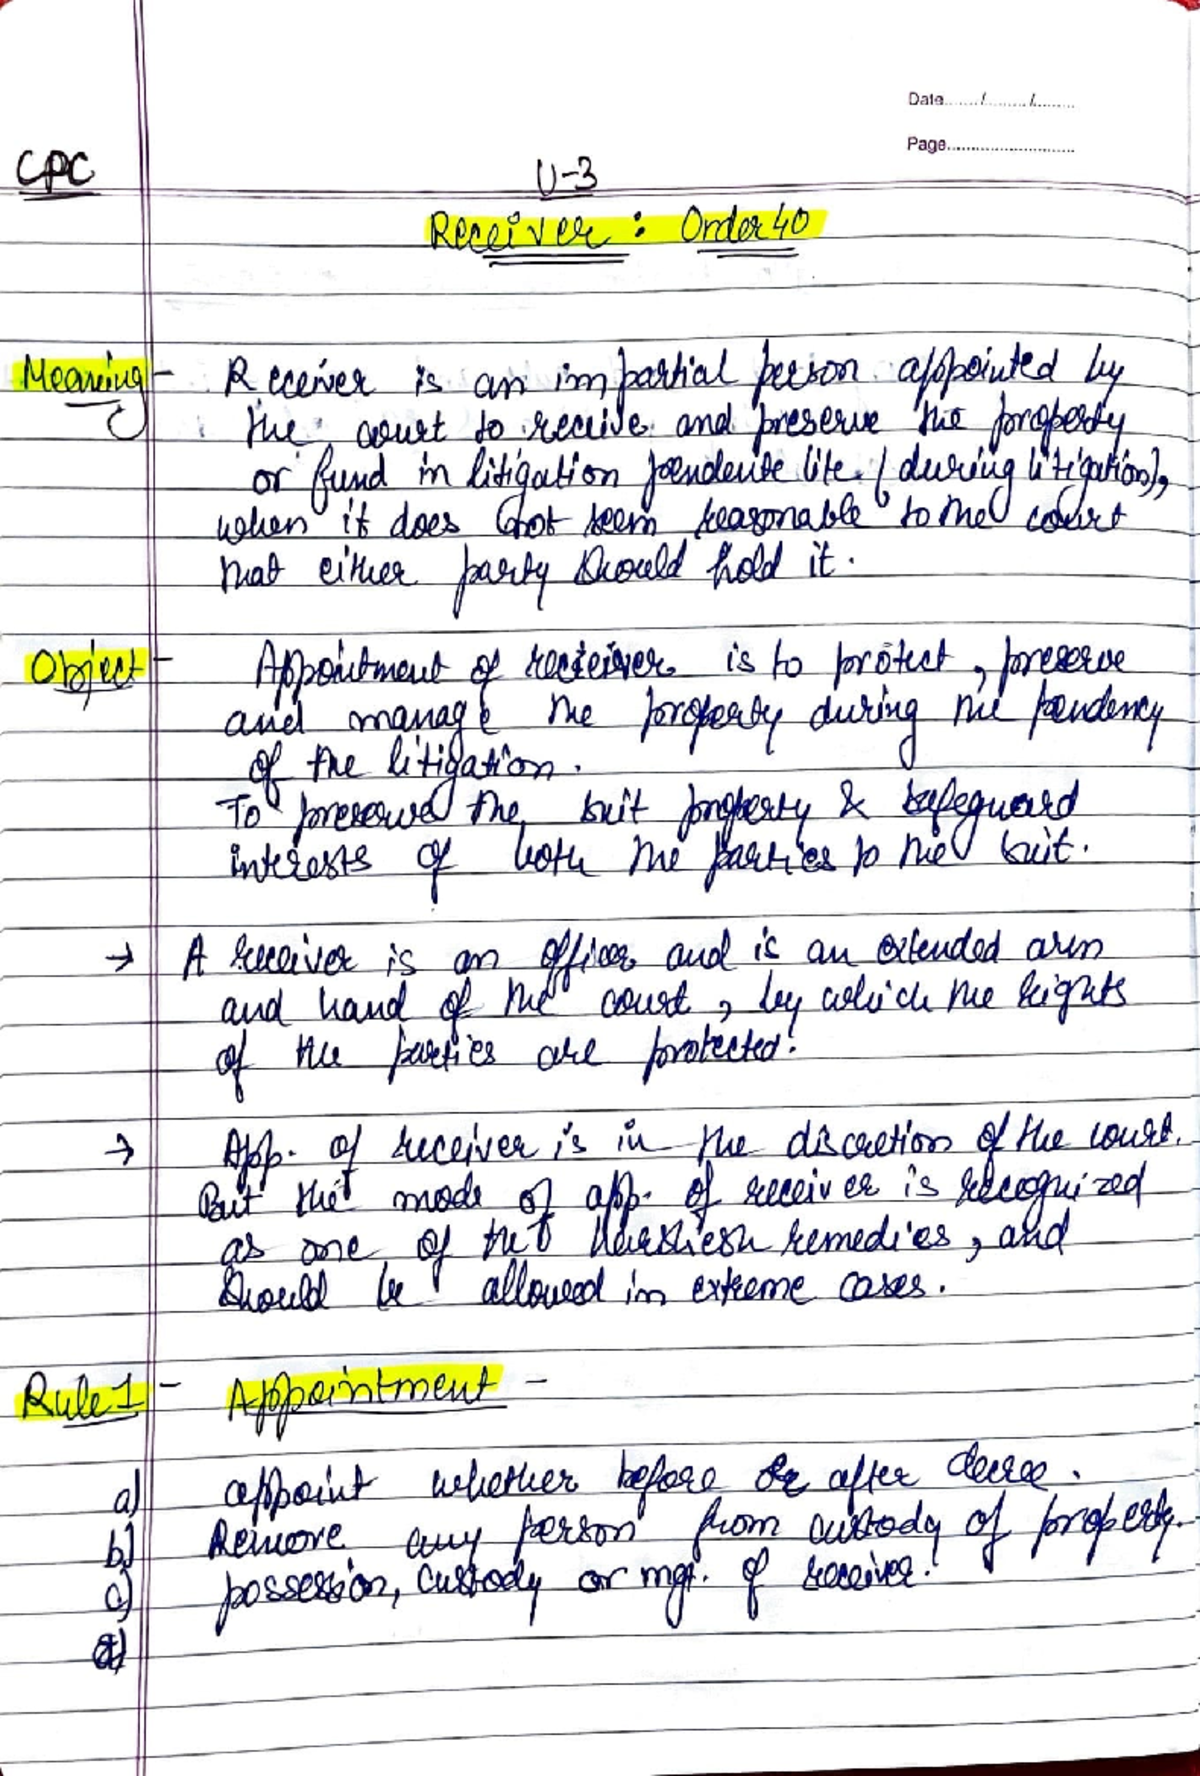 Date....../........./.........
Page............................
CPC
U-3
Receiver : Order 40
Meaning - Receiver is an impartial person appointed by
the court to receive and preserve the property
or fund in litigation pendente lite (during litigation),
when it does not seem reasonable to the court
that either party should hold it.
Object - Appointment of receiver is to protect, preserve
and manage the property during the pendency
of the litigation.
To preserve the suit property & safeguard
interests of both the parties to the suit.
→ A receiver is an officer and is an extended arm
and hand of the court, by which the rights
of the parties are protected.
→ App. of receiver is in the discretion of the court.
But the mode of app. of receiver is recognized
as one of the harshesh remedies, and
should be allowed in extreme cases.
Rule 1 - Appointment -
a) appoint whether before or after decree.
b) Remove any person from custody of property.
c) possession, custody or mgt. of receiver.
d)